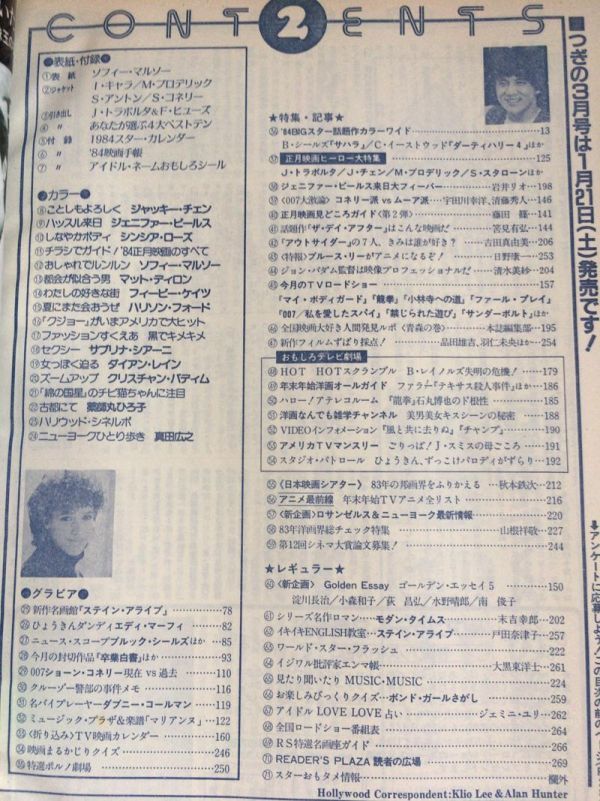 CONTENTS
2
■つぎの3月号は1月21日(土)発売です!
●表紙・付録●
①表紙 ソフィー・マルソー
②ジャケット I・キャラ/M・ブロデリック
S・アントン/S・コネリー
③引き出し J・トラボルタ&F・ヒューズ
④〃 あなたが選ぶ4大ベストテン
⑤付録 1984スター・カレンダー
⑥〃 '84映画手帳
⑦〃 アイドル・ネームおもしろシール
●カラー●
⑧ことしもよろしく ジャッキー・チェン
⑨ハッスル来日 ジェニファー・ビールス
⑩しなやかボディ シンシア・ローズ
⑪チラシでガイド/'84正月映画のすべて
⑫おしゃれでルンルン ソフィー・マルソー
⑬都会が似合う男 マット・ディロン
⑭わたしの好きな街 フィービー・ケイツ
⑮夏にまた会おうぜ ハリソン・フォード
⑯「クジョー」がいまアメリカで大ヒット
⑰ファッションすくえあ 黒でキメキメ
⑱セクシー サブリナ・シアーニ
⑲女っぽく迫る ダイアン・レイン
⑳ズームアップ クリスチャン・バディム
㉑「綿の国星」のチビ猫ちゃんに注目
㉒古都にて 薬師丸ひろ子
㉓ハリウッド・シネルポ
㉔ニューヨークひとり歩き 真田広之
●グラビア●
㉕新作名画館「ステイン・アライブ」……78
㉖ひょうきんダンディ エディ・マーフィ……82
㉗ニュース・スコープ ブルック・シールズほか…85
㉘今月の封切作品「卒業白書」ほか……93
㉙007ショーン・コネリー現在 vs 過去……110
㉚クルーゾー警部の事件メモ……116
㉛名バイプレーヤー ダブニー・コールマン……119
㉜ミュージック・プラザ&楽譜「マリアンヌ」…122
㉝〈折り込み〉TV映画カレンダー……160
㉞映画まるかじりクイズ……246
㉟特選ポルノ劇場……250
★特集・記事★
㊱'84BIGスター話題作カラーワイド……13
B・シールズ「サハラ」/C・イーストウッド「ダーティハリー4」ほか
㊲正月映画ヒーロー大特集……125
J・トラボルタ/J・チェン/M・ブロデリック/S・スタローンほか
㊳ジェニファー・ビールス来日大フィーバー……岩井リオ…198
㊴〈007大激論〉コネリー派 vs ムーア派……宇田川幸洋、清藤秀人…146
㊵正月映画見どころガイド〈第2弾〉……141
㊶話題作「ザ・デイ・アフター」はこんな映画だ……筈見有弘…144
㊷「アウトサイダー」の7人、きみは誰が好き?……吉田真由美…206
㊸〈特報〉ブルース・リーがアニメになるぞ!……日野康一…253
㊹ジョン・バダム監督は映像プロフェッショナルだ……清水美砂…204
㊺今月のTVロードショー……157
「マイ・ボディガード」「龍拳」「小林寺への道」「ファール・プレイ」
「007/私を愛したスパイ」「禁じられた遊び」「サンダーボルト」ほか
㊻全国映画大好き人間発見ルポ〈青森の巻〉……本誌編集部…195
㊼新作フィルムずばり採点!……品田雄吉、羽仁未央ほか…254
おもしろテレビ劇場
㊽HOT HOTスクランブル B・レイノルズ失明の危機!…179
㊾年末年始洋画オールガイド ファラー「テキサス殺人事件」ほか…186
㊿ハロー/アテレコルーム 「龍拳」石丸博也のド根性……185
51洋画なんでも雑学チャンネル 美男美女キスシーンの秘密……188
52VIDEOインフォメーション「風と共に去りぬ」「チャンプ」……190
53アメリカTVマンスリー ごりっぱ!J・スミスの母ごころ……191
54スタジオ・パトロール ひょうきん、ずっこけパロディがずらり……192
55〈日本映画シアター〉83年の邦画界をふりかえる……秋本鉄次…212
56アニメ最前線 年末年始TVアニメ全リスト……216
57〈新企画〉ロサンゼルス&ニューヨーク最新情報……220
58 83年洋画界総チェック特集……山根祥敬…227
59第12回シネマ大賞論文募集!……244
★レギュラー★
60〈新企画〉Golden Essay ゴールデン・エッセイ5……150
淀川長治/小森和子/荻昌弘/水野晴郎/南俊子
61シリーズ名作ロマン……モダン・タイムス……末吉幸郎…202
62イキイキENGLISH教室…ステイン・アライブ……戸田奈津子…257
63ワールド・スター・フラッシュ……222
64イジワル批評家エンマ帳……大黒東洋士…261
65見たり聞いたり MUSIC・MUSIC……224
66お楽しみびっくりクイズ…ボンド・ガールさがし……259
67アイドルLOVE LOVE占い……ジェミニ・ユリ…262
68全国ロードショー番組表……264
69RS特選名画座ガイド……266
70READER'S PLAZA 読者の広場……268
71スターおもタメ情報……欄外
Hollywood Correspondent:Klio Lee & Alan Hunter